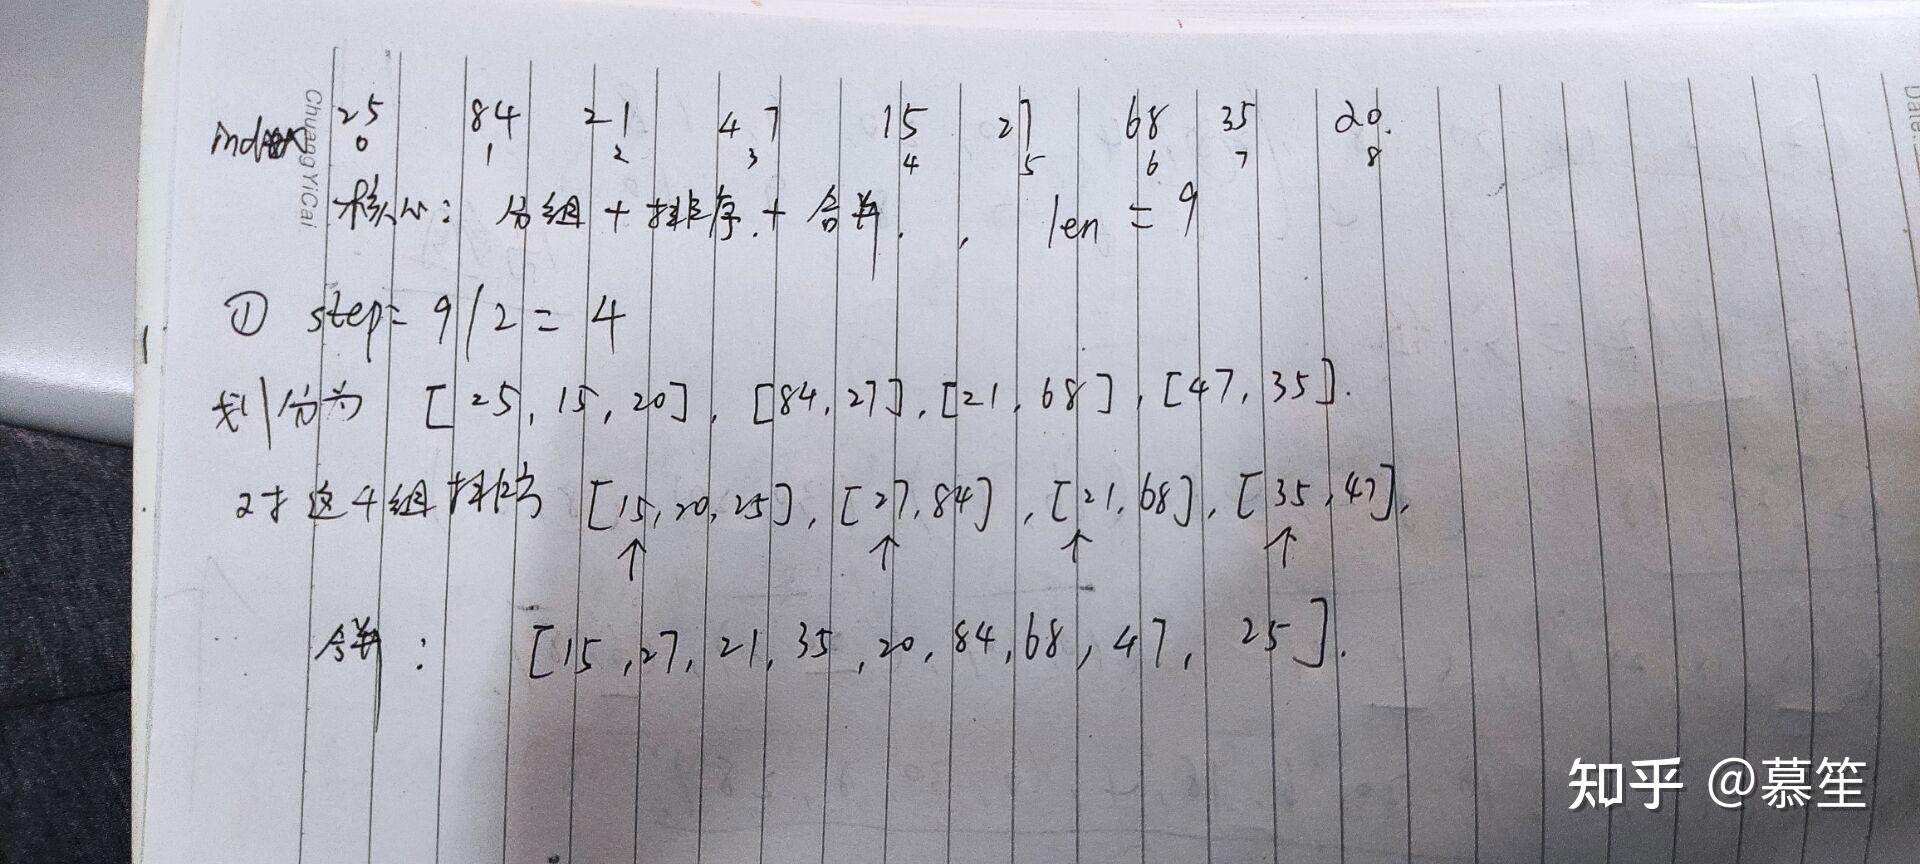 25 84 21 47 15 27 68 35 20.
index 0 1 2 3 4 5 6 7 8
核心: 分组 + 排序. + 合并. , len = 9
① step = 9 / 2 = 4
划分为 [25, 15, 20], [84, 27], [21, 68], [47, 35].
对这4组排序 [15, 20, 25], [27, 84], [21, 68], [35, 47],
↑ ↑ ↑ ↑
合并: [15, 27, 21, 35, 20, 84, 68, 47, 25].
Chuang YiCai
Date.
知乎 @慕笙